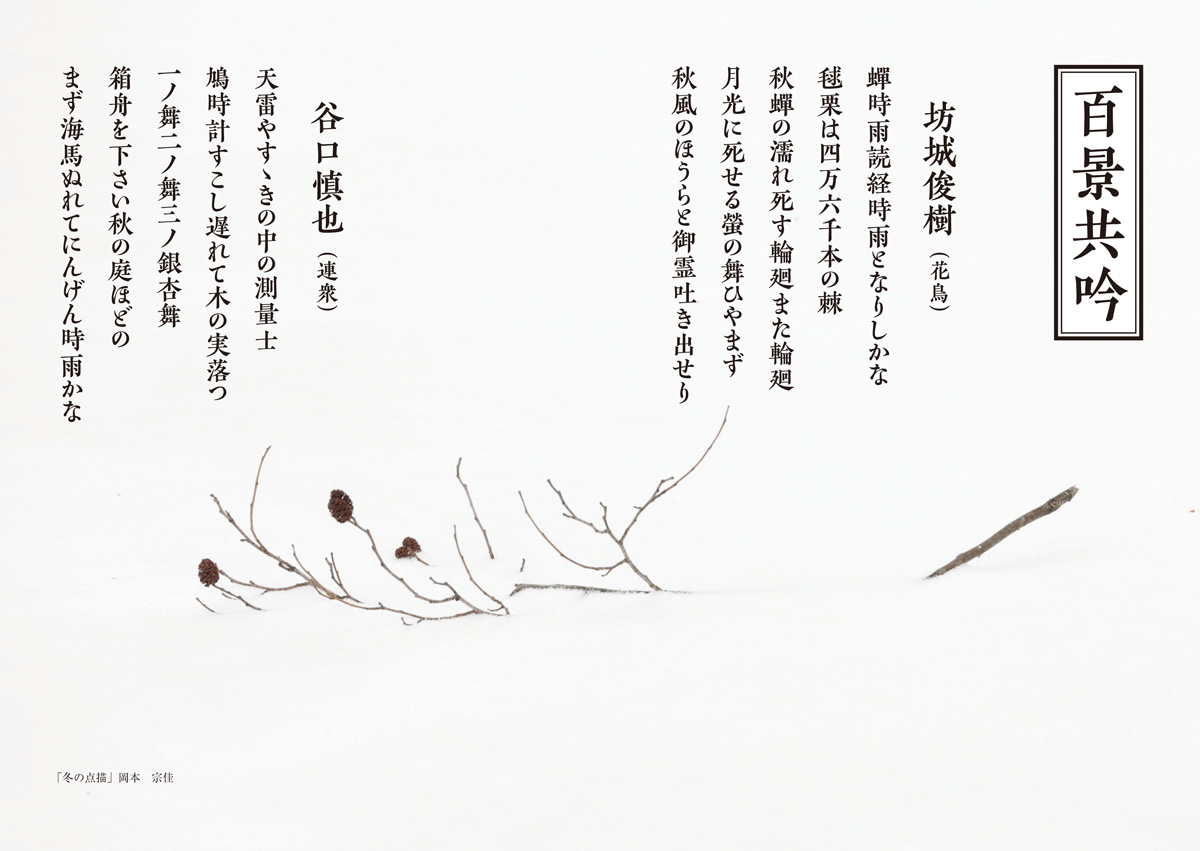 百景共吟
坊城俊樹（花鳥）
蟬時雨読経時雨となりしかな
毬栗は四万六千本の棘
秋蟬の濡れ死す輪廻また輪廻
月光に死せる螢の舞ひやまず
秋風のほうらと御霊吐き出せり
谷口慎也（連衆）
天雷やすゝきの中の測量士
鳩時計すこし遅れて木の実落つ
一ノ舞二ノ舞三ノ銀杏舞
箱舟を下さい秋の庭ほどの
まず海馬ぬれてにんげん時雨かな
「冬の点描」岡本　宗佳